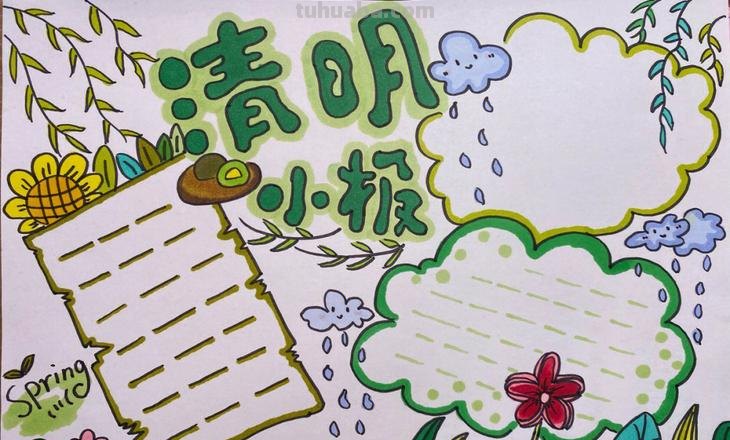 tuhuaba.com
清明
小报
Spring